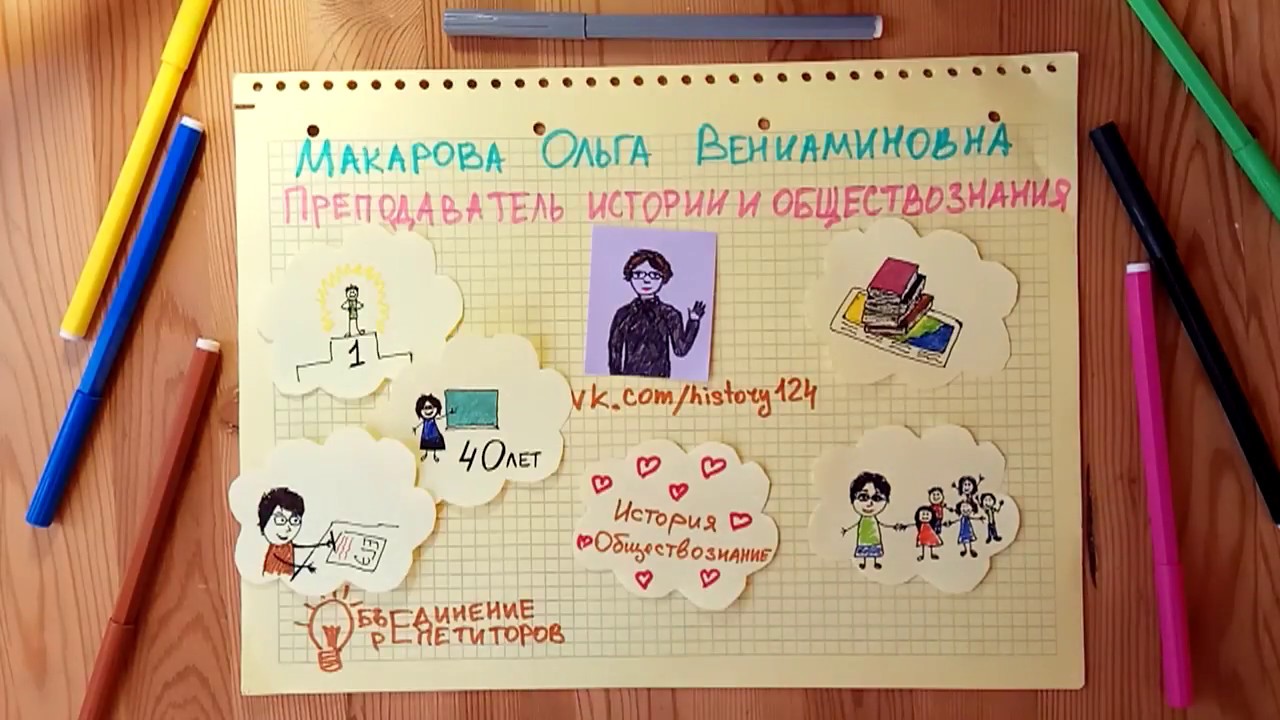 МАКАРОВА ОЛЬГА ВЕНИАМИНОВНА
ПРЕПОДАВАТЕЛЬ ИСТОРИИ И ОБЩЕСТВОЗНАНИЯ
1
vk.com/history124
40 ЛЕТ
ЕГЭ
История
Обществознание
ОБЪЕДИНЕНИЕ
РЕПЕТИТОРОВ